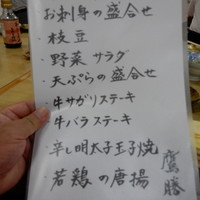 お刺身の盛合せ
・枝豆
・野菜サラダ
・天ぷらの盛合せ
・牛サガリステーキ
・牛バラステーキ
・辛し明太子玉子焼
・若鶏の唐揚
鷹勝